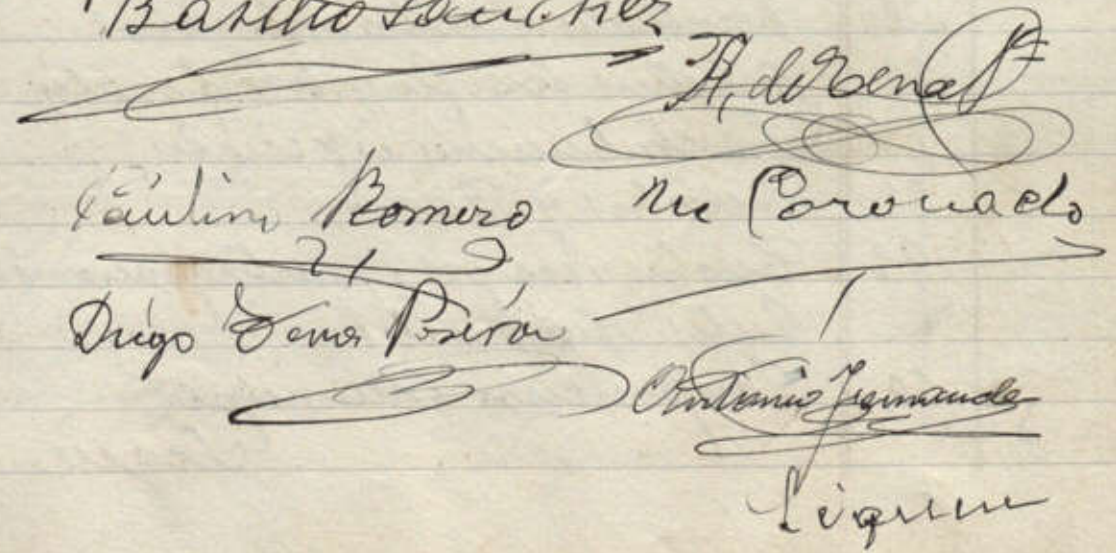 Basilio Sanchez
A, de Tena
Paulino Romero
M Coronado
Diego Tena
Antonio Fernande
Siguen